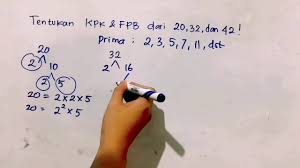 Tentukan KPK & FPB dari 20, 32, dan 42 !
prima : 2, 3, 5, 7, 11, dst
20
2 10
2 5
20 = 2 x 2 x 5
20 = 2² x 5
32
2 16